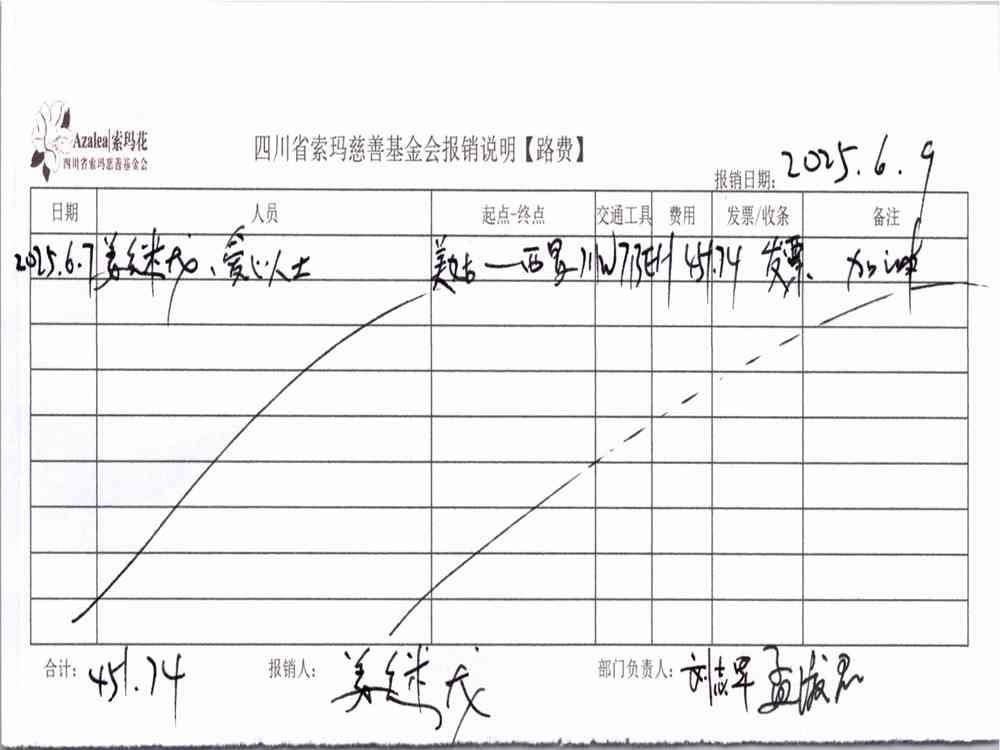 Azalea|索玛花
四川省索玛慈善基金会
四川省索玛慈善基金会报销说明【路费】
报销日期: 2025.6.9
日期 人员 起点-终点 交通工具 费用 发票/收条 备注
2025.6.7 姜继成、爱心人士 美姑——西昌 451.74 发票 加油
合计: 451.74 报销人: 姜继成 部门负责人: 刘志军